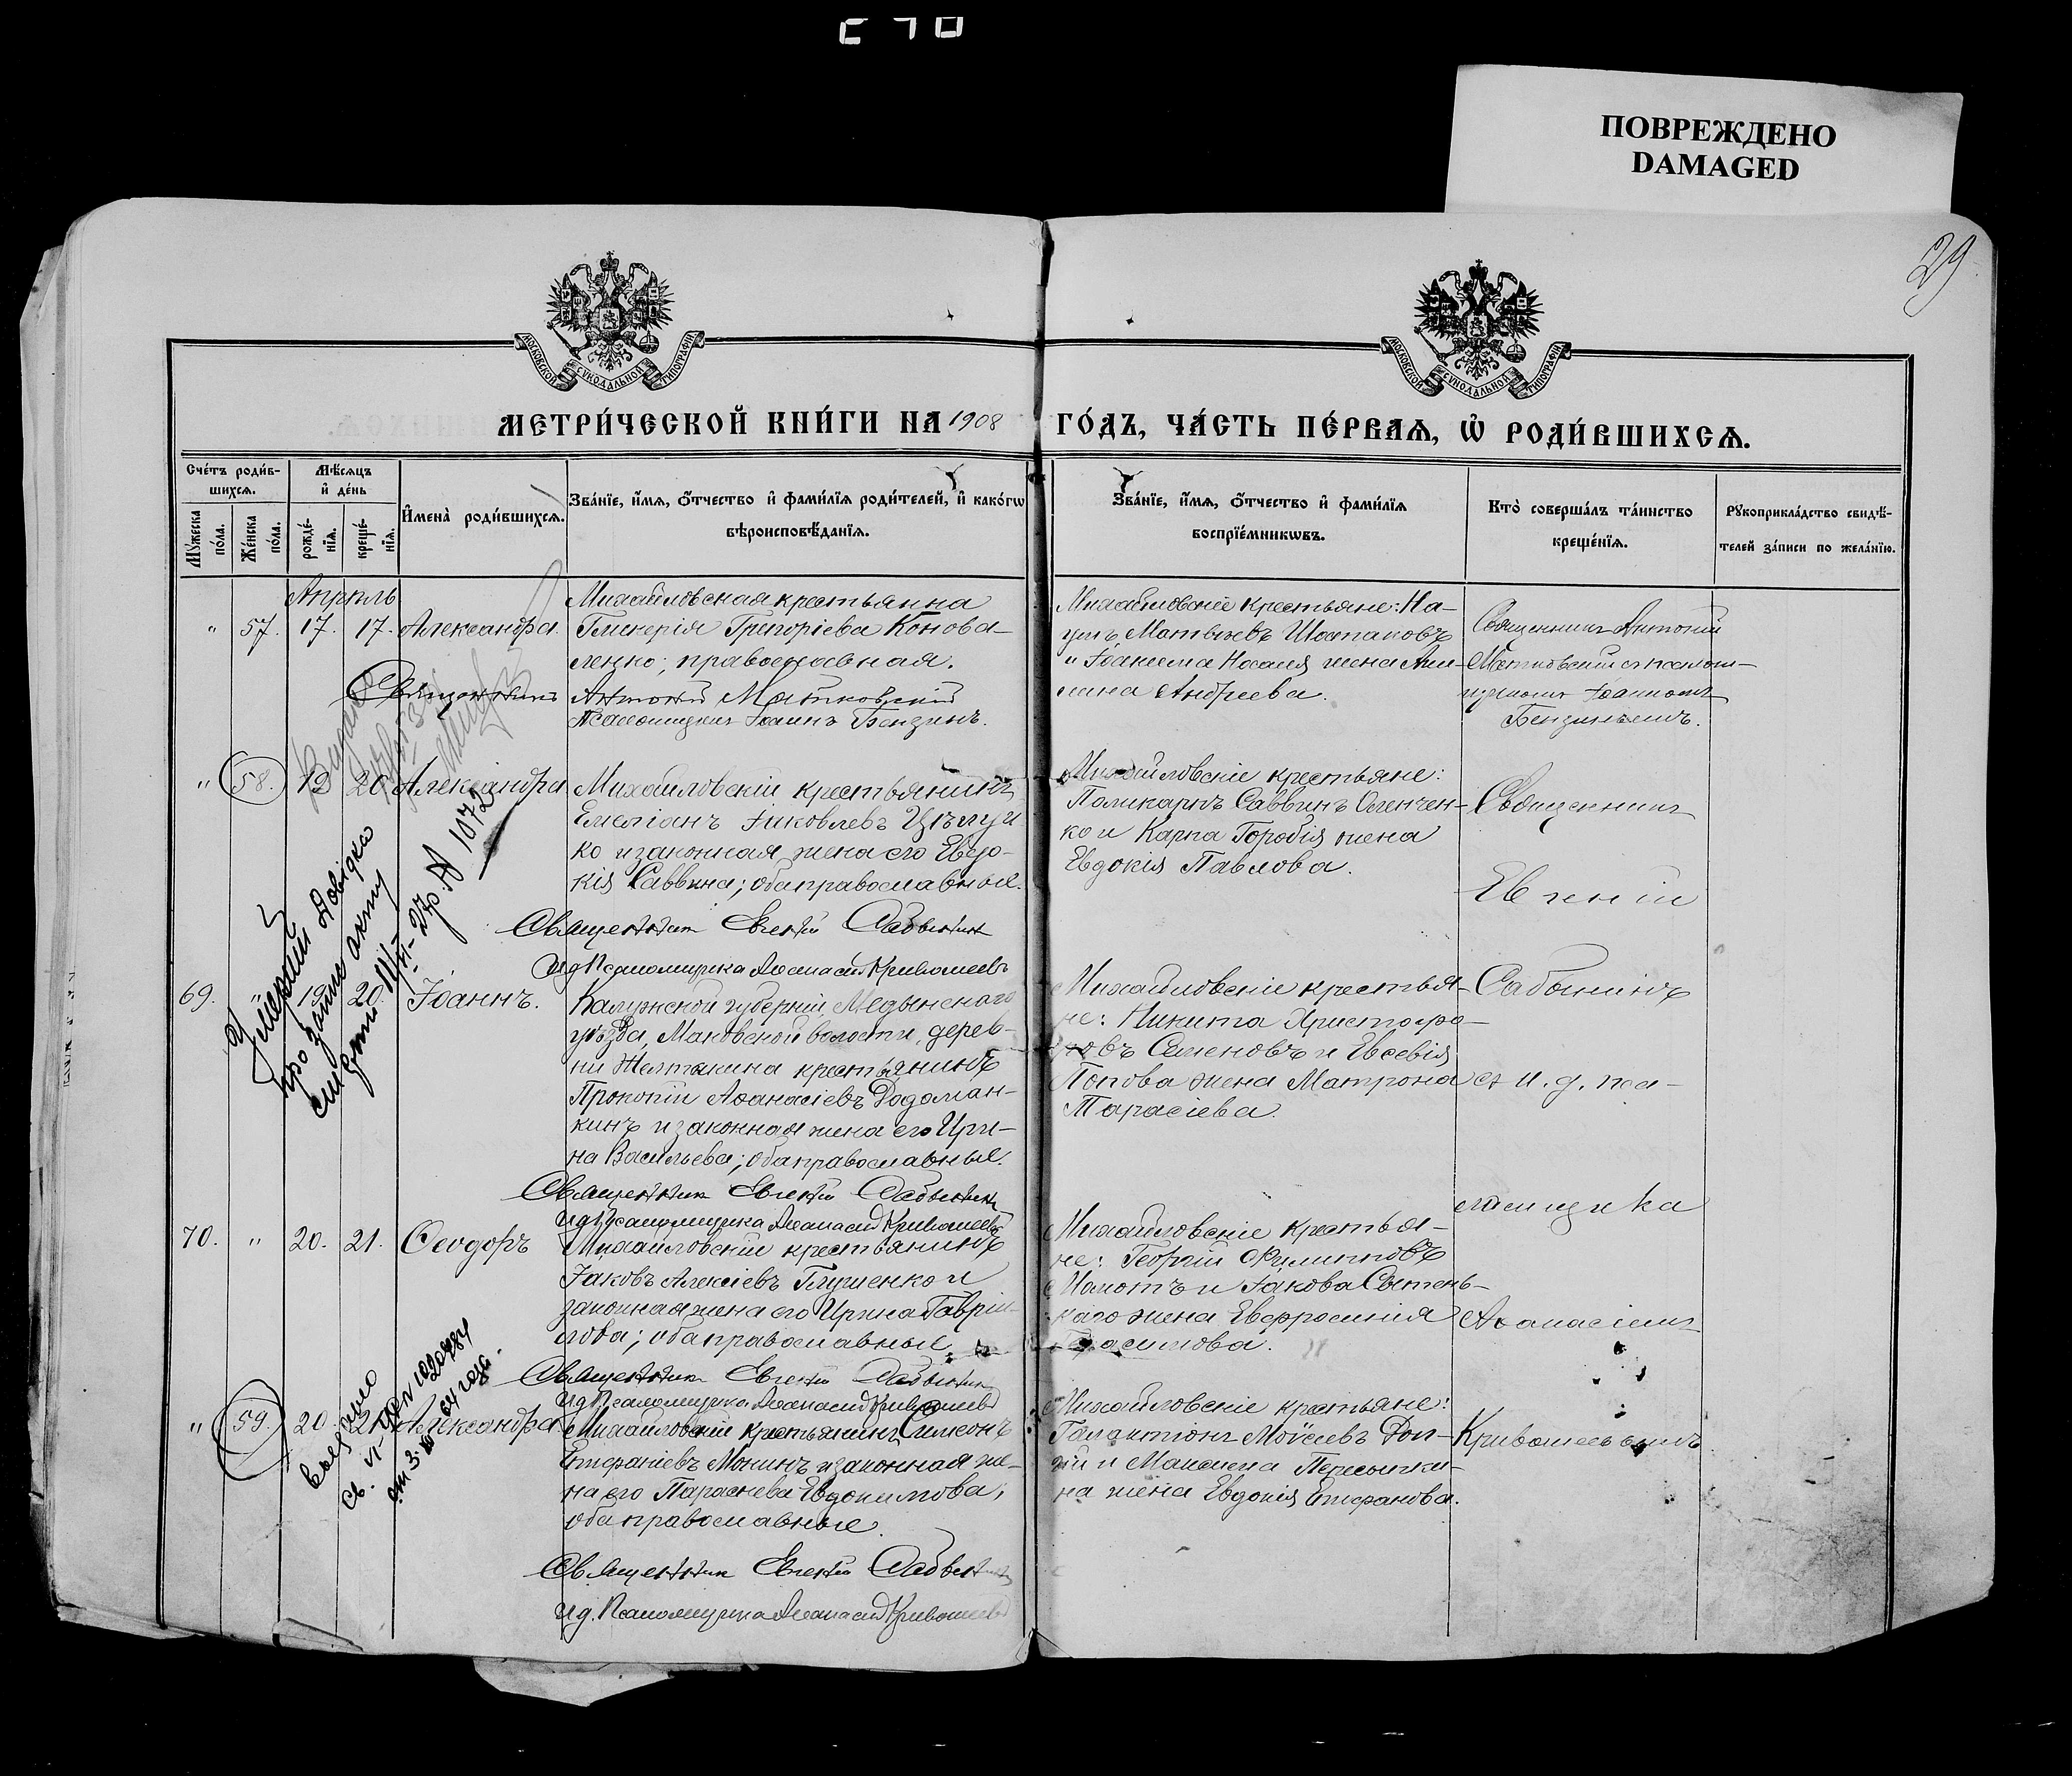 ПОВРЕЖДЕНО
DAMAGED
29
МОСКОВСКОЙ СѴНОДАЛЬНОЙ ТИПОГРАФІИ
МОСКОВСКОЙ СѴНОДАЛЬНОЙ ТИПОГРАФІИ
МЕТРИ́ЧЕСКОЙ КНИ́ГИ НА 1908 ГО́ДЪ, ЧА́СТЬ ПЕ́РВАѦ, Ѡ҆ РОДИ́ВШИХСѦ.
Сче́тъ роди́в-
шихсѧ.
Мꙋ́жеска по́ла.
Же́нска по́ла.
Мѣ́сѧцъ
и҆ де́нь
рожде́-
нїѧ.
креще́-
нїѧ.
И҆мена̀ роди́вшихсѧ.
Зва́нїе, и҆́мѧ, ѻ҆́тчество и҆ фами́лїѧ роди́телей, и҆ како́гѡ
вѣроисповѣ́данїѧ.
Зва́нїе, и҆́мѧ, ѻ҆́тчество и҆ фами́лїѧ
воспрїе́мникѡвъ.
Кто̀ соверша́лъ та́инство
креще́нїѧ.
Рꙋкоприкла́дство свидѣ́-
телей за́писи по жела́нїю.
Апрѣль
" 57. 17. 17. Александра.
Михайловская крестьянка
Гликерія Григоріева Конова-
ленко; православная.
Священникъ Антоній Матковскій
Псаломщикъ Іоаннъ Бензинъ.
Михайловскіе крестьяне: На-
умъ Матвѣевъ Шостаковъ
и Іоакима Носаля жена Аки-
лина Андреева.
Священникъ Антоній
Матковскій съ псалом-
щикомъ Іоанномъ
Бензинымъ.
" 58. 19 20 Александра
Михайловскій крестьянинъ
Емеліанъ Іаковлевъ Цѣлуй
ко и законная жена его Евдо-
кія Саввина; оба православные.
Священник Евгеній Сабынин
И д Псаломщика Афанасій Кривошеевъ
Михайловскіе крестьяне:
Поликарпъ Саввинъ Оленчен-
ко и Карпа Горобія жена
Евдокія Павлова.
Священникъ
Евгеній
69. " 19 20. Іоаннъ.
Калужской губерніи, Медынскаго
уѣзда, Маковской волости, дерев-
ни Желтыкина крестьянинъ
Прокопій Аѳанасіевъ Додоман-
кинъ и законная жена его Ири-
на Васильева; оба православные.
Священник Евгеній Сабынин
И д Псаломщика Афанасій Кривошеевъ
Михайловскіе крестья-
не: Никита Христофо-
ровъ Семеновъ и Евсевія
Попова жена Матрона
Тарасіева.
Сабынинъ
съ и. д. пса-
ломщика
70. " 20. 21. Ѳеодоръ
Михайловскій крестьянинъ
Іаковъ Алексіевъ Глушенко и
законная жена его Ирина Гаврі-
лова; оба православные
Священник Евгеній Сабынин
И д Псаломщика Афанасій Кривошеевъ
Михайловскіе крестья-
не: Георгій Филипповъ
и Іакова Сытень-
каго жена Евфросинія
Герасимова.
Аѳанасіемъ
" 59. 20. 21. Александра.
Михайловскій крестьянинъ Симеонъ
Епифаніевъ Мокинъ и законная же-
на его Параскева Евдокимова;
оба православные.
Священник Евгеній Сабынин
И д. Псаломщика Афанасій Кривошеевъ
Михайловскіе крестьяне:
Галактіонъ Моѵсіевъ Дол-
гій и Максима Пересыпки-
на жена Евдокія Епифанова.
Кривошеевымъ.
про запис акту
смерти
№ 1072
выдано
св.